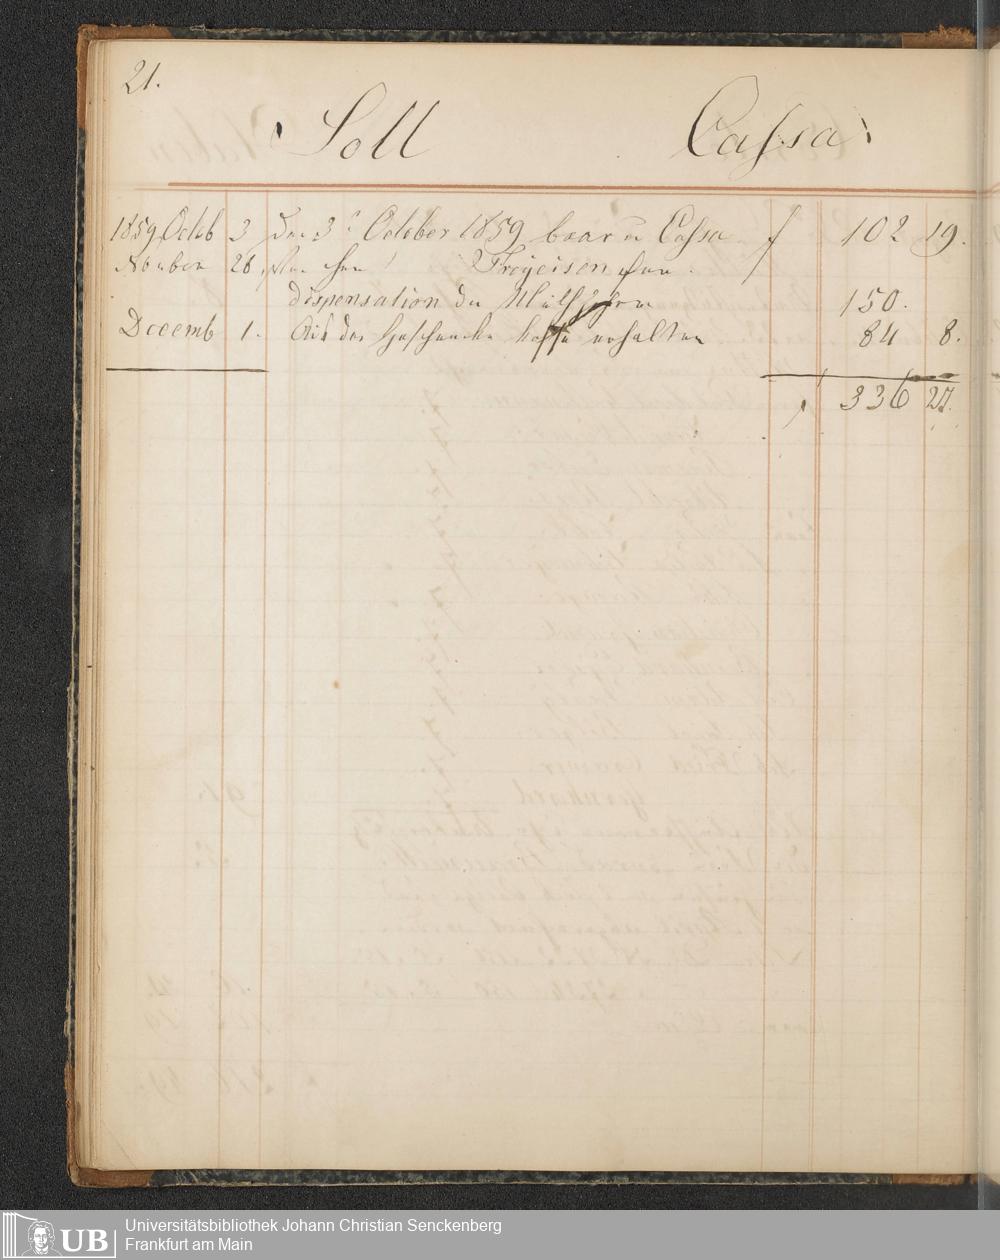 21.
Soll Cassa
1859 Octob 3 Den 3 October 1859 baar in Cassa f 102 19.
Novber 26 Von Herrn Freyeisen
dispensation der 150.
Decemb 1. Aus der Geschencke Kasse erhalten 84 8.
336 27
UB Universitätsbibliothek Johann Christian Senckenberg
Frankfurt am Main